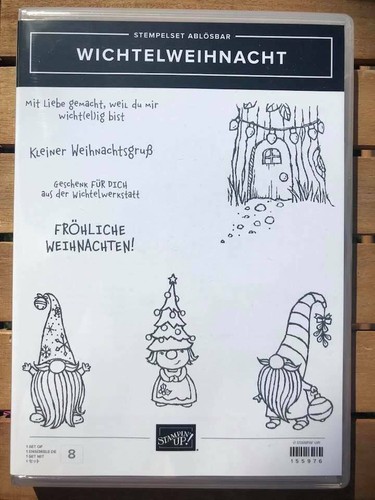 STEMPELSET ABLÖSBAR
WICHTELWEIHNACHT
Mit Liebe gemacht, weil du mir
wicht(el)ig bist
Kleiner Weihnachtsgruß
Geschenk FÜR DICH
aus der Wichtelwerkstatt
FRÖHLICHE
WEIHNACHTEN!
1 SET OF
1 ENSEMBLE DE
1 SET MIT
8
STAMPIN'
UP!
© STAMPIN' UP!
155976